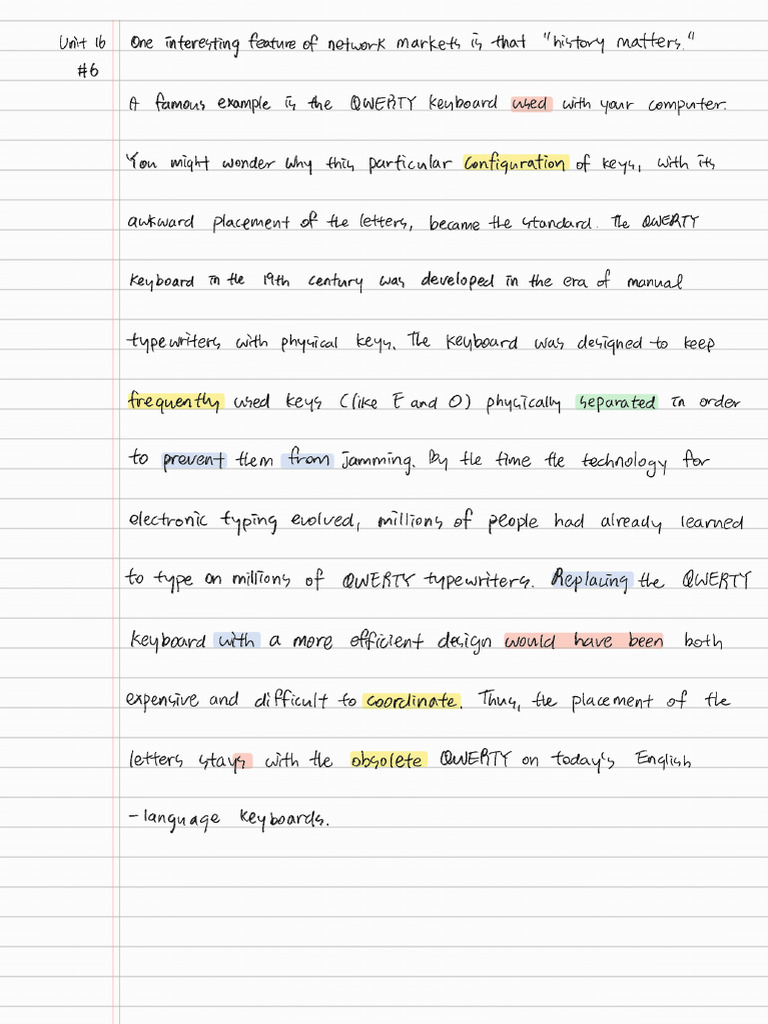 Unit 16 One interesting feature of network markets is that "history matters."
#6
A famous example is the QWERTY keyboard used with your computer.
You might wonder why this particular configuration of keys, with its
awkward placement of the letters, became the standard. The QWERTY
keyboard in the 19th century was developed in the era of manual
typewriters with physical keys. The keyboard was designed to keep
frequently used keys (like E and O) physically separated in order
to prevent them from jamming. By the time the technology for
electronic typing evolved, millions of people had already learned
to type on millions of QWERTY typewriters. Replacing the QWERTY
keyboard with a more efficient design would have been both
expensive and difficult to coordinate. Thus, the placement of the
letters stays with the obsolete QWERTY on today's English
-language keyboards.